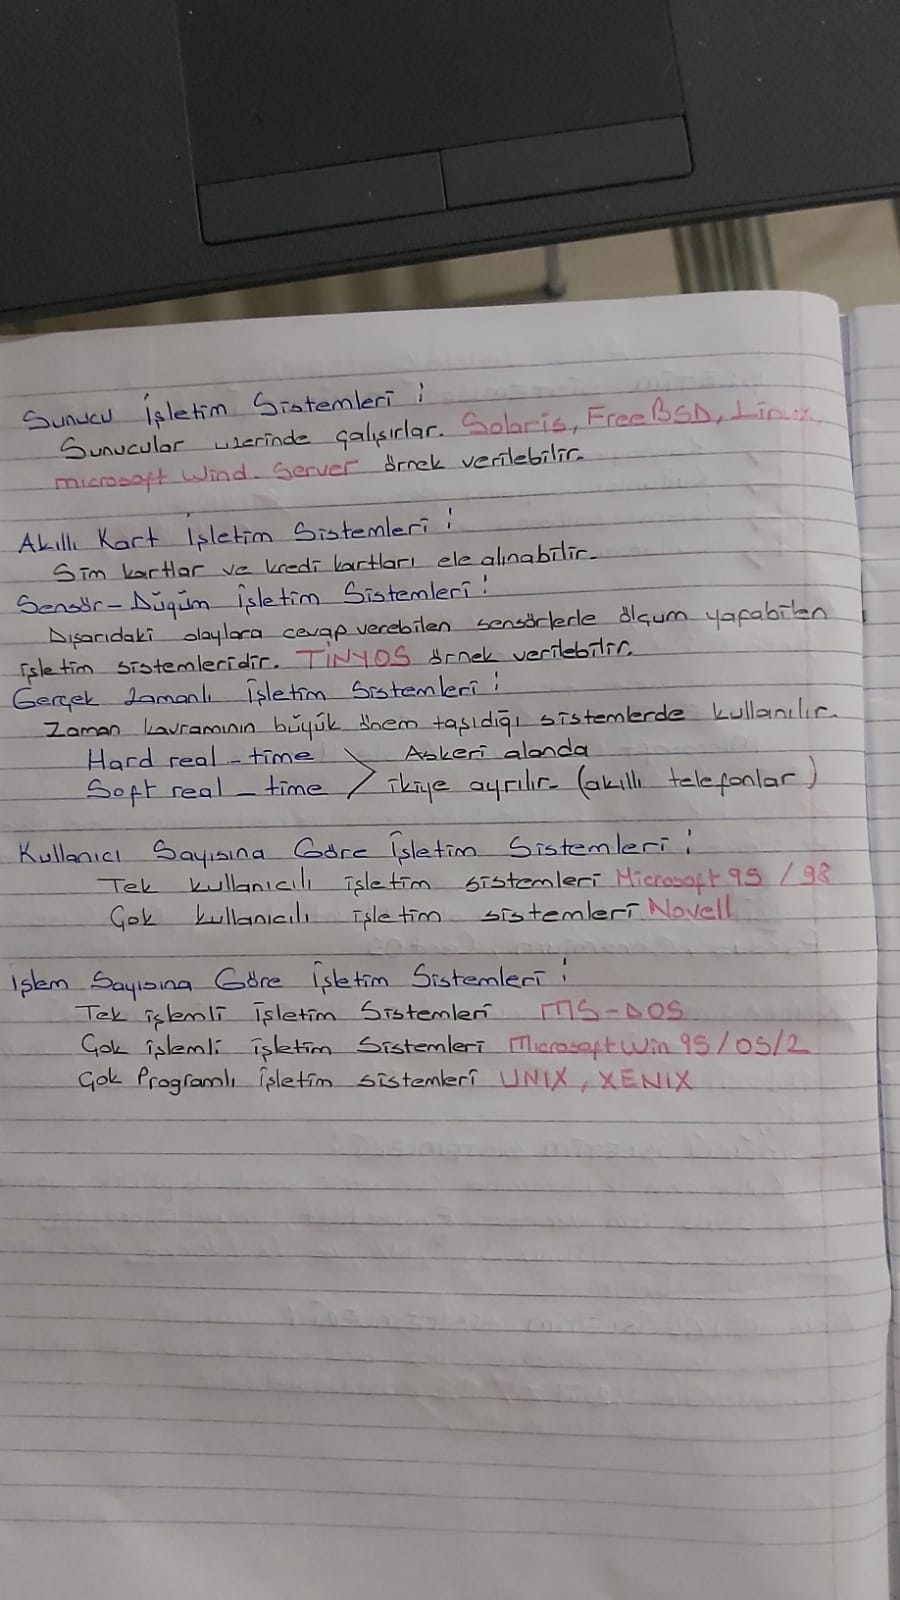 Sunucu İşletim Sistemleri:
Sunucular üzerinde çalışırlar. Solaris, FreeBSD, Linux,
microsoft Wind. Server örnek verilebilir.
Akıllı Kart İşletim Sistemleri:
Sim kartlar ve kredi kartları ele alınabilir.
Sensör-Düğüm İşletim Sistemleri:
Dışarıdaki olaylara cevap verebilen sensörlerle ölçüm yapabilen
işletim sistemleridir. TİNYOS örnek verilebilir.
Gerçek Zamanlı İşletim Sistemleri:
Zaman kavramının büyük önem taşıdığı sistemlerde kullanılır.
Hard real-time > Askeri alanda
Soft real-time > ikiye ayrılır. (akıllı telefonlar)
Kullanıcı Sayısına Göre İşletim Sistemleri:
Tek kullanıcılı işletim sistemleri Microsoft 95 / 98
Çok kullanıcılı işletim sistemleri Novell
İşlem Sayısına Göre İşletim Sistemleri:
Tek işlemli İşletim Sistemleri MS-DOS
Çok işlemli işletim Sistemleri Microsoft Win 95/OS/2
Çok Programlı işletim sistemleri UNIX, XENIX